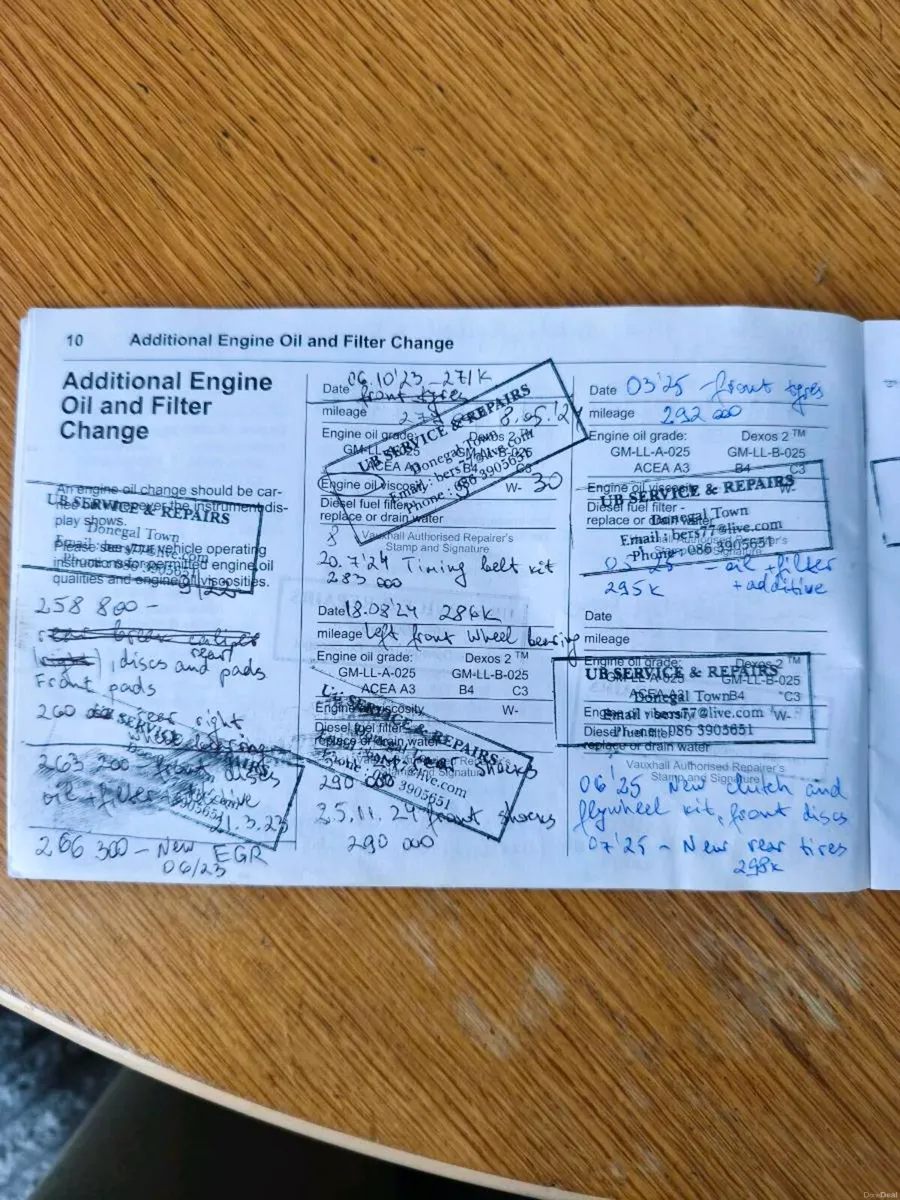 10 Additional Engine Oil and Filter Change
Additional Engine
Oil and Filter
Change
An engine oil change should be car-
play shows.
UB SERVICE & REPAIRS
Donegal Town
Please see your vehicle operating
instructions for permitted engine oil
qualities and engine oil viscosities.
9/22
258 800 -
rear
discs and pads
Front pads
260 000 rear right
wheel bearing
263 200 - front discs
oil + filter
21.3.23
266 300 - New EGR
06/23
Date 06.10'23 - 271K
front tyres
mileage
Engine oil grade: Dexos 2 ™
GM-LL-B-025
ACEA A3 B4 C3
Engine oil viscosity W- 30
Diesel fuel filter -
replace or drain water
UB SERVICE & REPAIRS
Donegal Town
Email : bers77@live.com
Phone : 086 3905651
Vauxhall Authorised Repairer's
Stamp and Signature
20.7'24 Timing belt kit
283 000
Date 18.08'24 286K
mileage left front wheel bearing
Engine oil grade: Dexos 2 ™
GM-LL-A-025 GM-LL-B-025
ACEA A3 B4 C3
Engine oil viscosity W-
Diesel fuel filter -
replace or drain water
SERVICE & REPAIRS
rear shocks
290 000
25.11.24 front shocks
290 000
Date 03'25 - front tyres
mileage 292 000
Engine oil grade: Dexos 2 ™
GM-LL-A-025 GM-LL-B-025
ACEA A3 B4 C3
Engine oil viscosity W-
Diesel fuel filter -
replace or drain water
UB SERVICE & REPAIRS
Donegal Town
Email : bers77@live.com
Phone : 086 3905651
Vauxhall Authorised Repairer's
Stamp and Signature
- oil + filter
295K + additive
Date
mileage
Engine oil grade: Dexos 2 ™
GM-LL-A-025 GM-LL-B-025
ACEA A3 B4 C3
Engine oil viscosity W-
Diesel fuel filter -
replace or drain water
UB SERVICE & REPAIRS
Donegal Town
Email : bers77@live.com
Phone : 086 3905651
Vauxhall Authorised Repairer's
Stamp and Signature
06'25 New clutch and
flywheel kit, front discs
07'25 - New rear tires
298K
DoneDeal